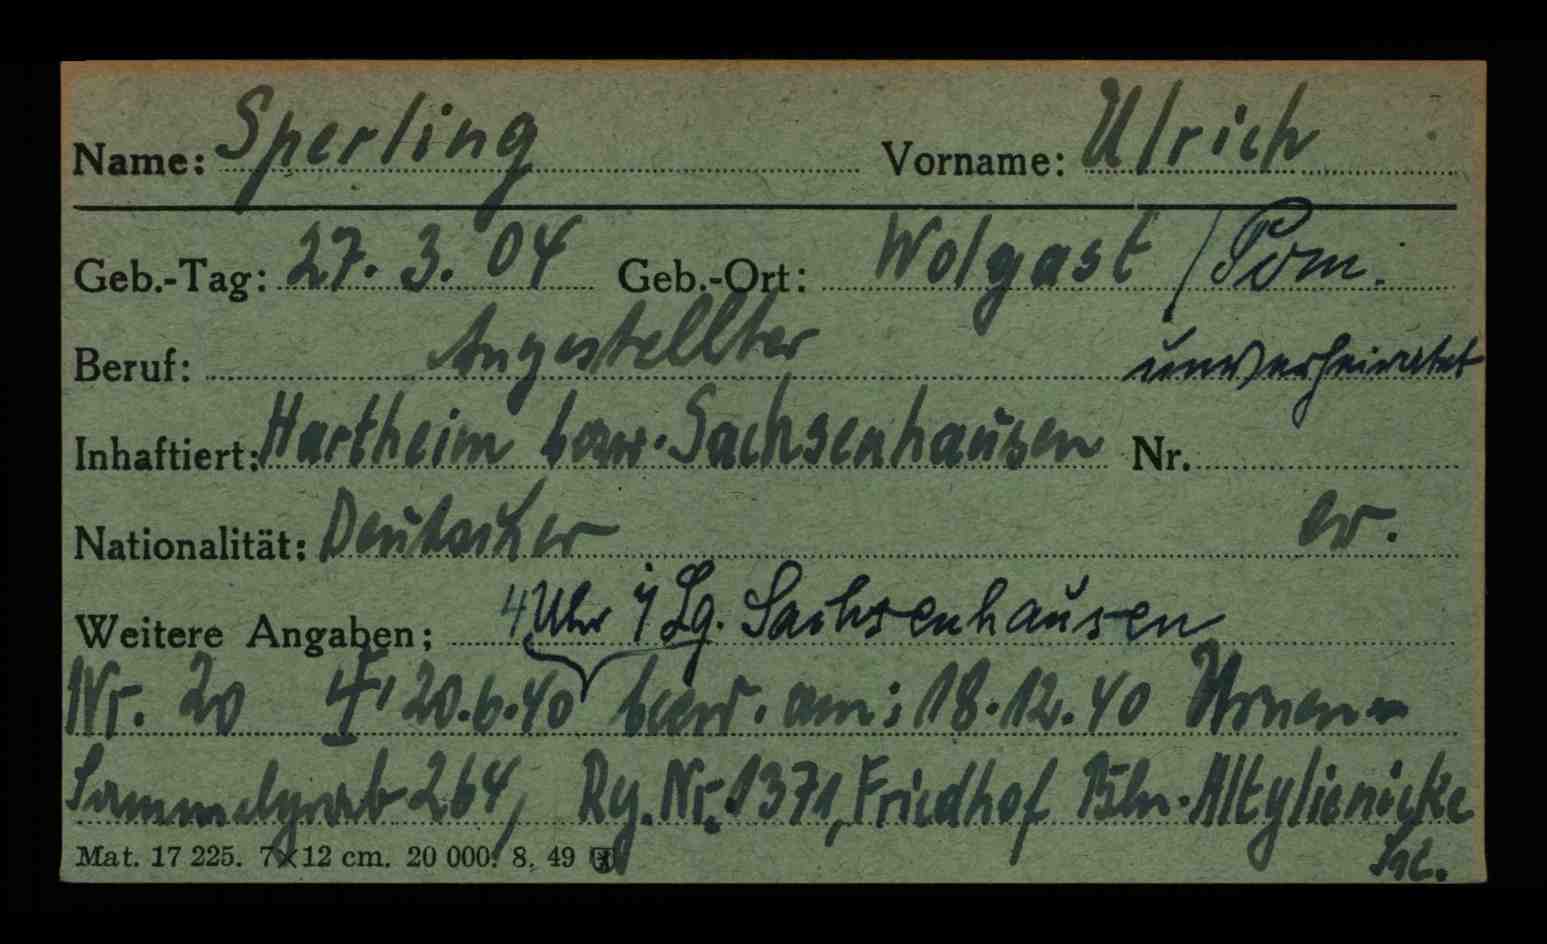 Name: Sperling Vorname: Ulrich
Geb.-Tag: 27. 3. 04 Geb.-Ort: Wolgast / Pom.
Beruf: Angestellter unverheiratet
Inhaftiert: Hartheim bzw. Sachsenhausen Nr.
Nationalität: Deutscher ev.
Weitere Angaben: 4 Uhr i/ Lg. Sachsenhausen
Nr. 20 20.6.40 bezw. am: 18.12.40 Urnen=
Sammelgrab 264, Rg. Nr. 1371, Friedhof Bln.-Altglienicke
Mat. 17 225. 7×12 cm. 20 000. 8. 49